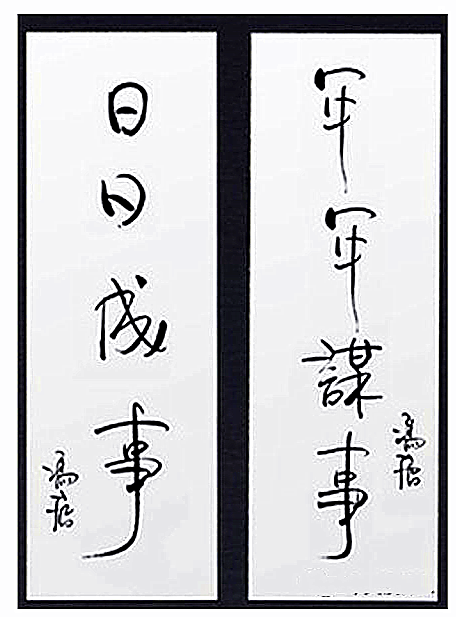 年年謀事
馮唐
日日成事
馮唐